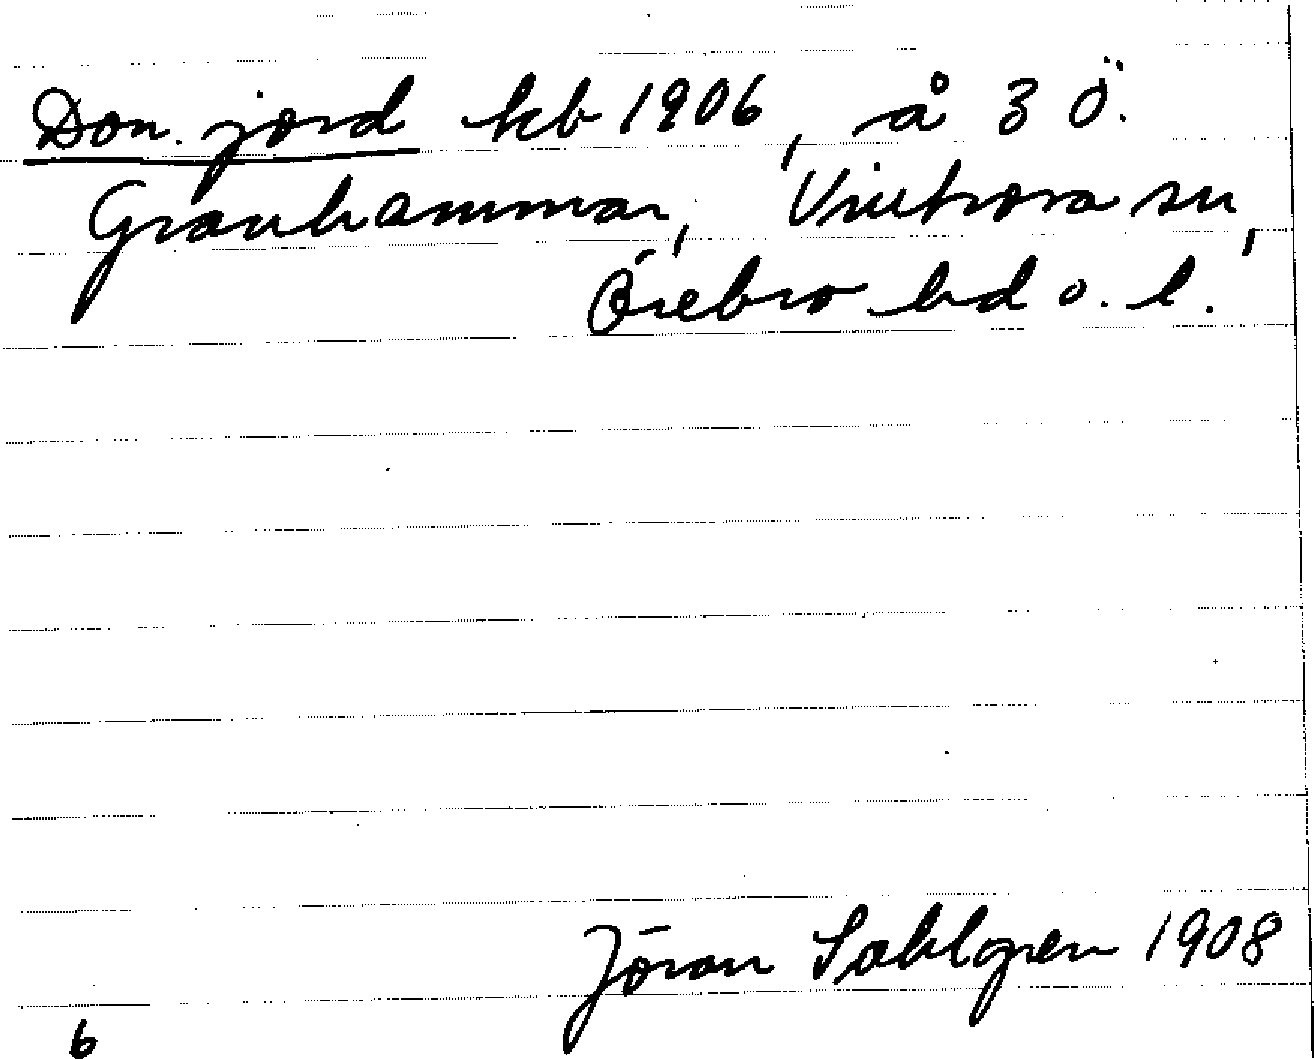 Don. jord kb 1906, å 3 Ö.
Granhammar, Vintrosa sn,
Örebro hd o. l.
Jöran Sahlgren 1908
6